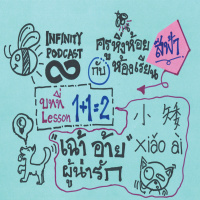 INFINITY
PODCAST
ครูหิ่งห้อย
กับ
ห้องเรียน
สีฟ้า
บทที่
Lesson
1+1=2
小 矮
xiǎo ǎi
"เฉ้า อ้าย"
ผู้น่ารัก